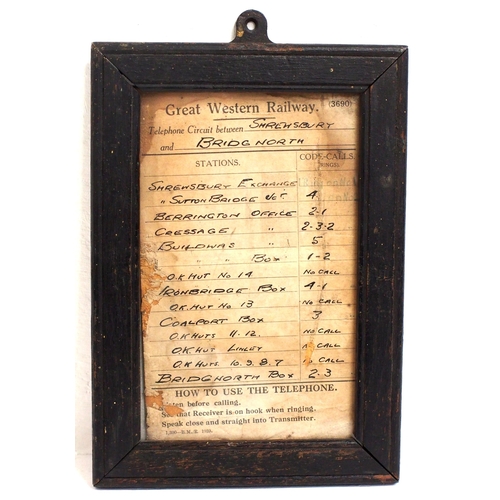 Great Western Railway.
(3690)
Telephone Circuit between SHREWSBURY
and BRIDGNORTH
STATIONS. CODE-CALLS.
(RINGS).
SHREWSBURY EXCHANGE
" SUTTON BRIDGE JCT 4
BERRINGTON OFFICE 2-1
CRESSAGE " 2-3-2
BUILDWAS " 5
" " BOX 1-2
O.K. HUT NO 14 NO CALL
IRONBRIDGE BOX 4-1
O.K. HUT NO 13 NO CALL
COALPORT BOX 3
O.K. HUTS 11. 12. NO CALL
O.K. HUT LINLEY CALL
O.K. HUTS 10. 9. 8. 7 NO CALL
BRIDGNORTH BOX 2-3
HOW TO USE THE TELEPHONE.
before calling.
that Receiver is on hook when ringing.
Speak close and straight into Transmitter.